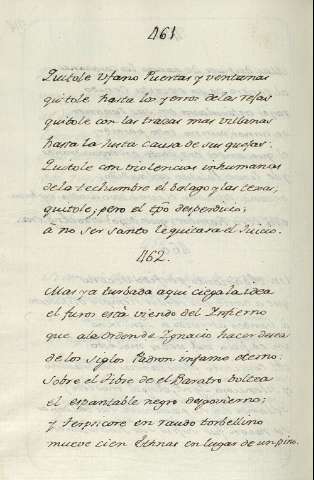 461
Quitole Ufano Puertas y ventanas
quitole hasta los yerros de las rejas
quitole con las trazas mas villanas
hasta la justa causa de sus quejas.
Quitole con violencias inhumanas
de la techumbre el balago y las texas,
quitole; pero el tpõ desperdicio;
à no ser santo le quitara el Juicio.
462.
Mas ya turbada aqui ciega la idea
el furor està viendo del Infierno
que a la Orden de Ignacio hacer desea
de los siglos Padron infame eterno:
sobre el Jibre de el Baratro boltea
el espantable negro desgovierno;
y Terpsicore en raudo torbellino
mueve cien Ethnas en lugar de un pino.